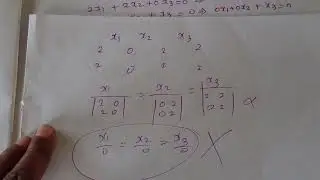 2x₁ + 2x₂ + 0x₃ = 0
⇒ 0x₁ + 0x₂ + x₃ = 0
x₁ x₂ x₃
2 0 2 2
2 0 2 2
x₁/|2 0; 2 0| = x₂/|0 2; 0 2| = x₃/|2 2; 0 2| α
x₁/0 = x₂/0 = x₃/0 ×